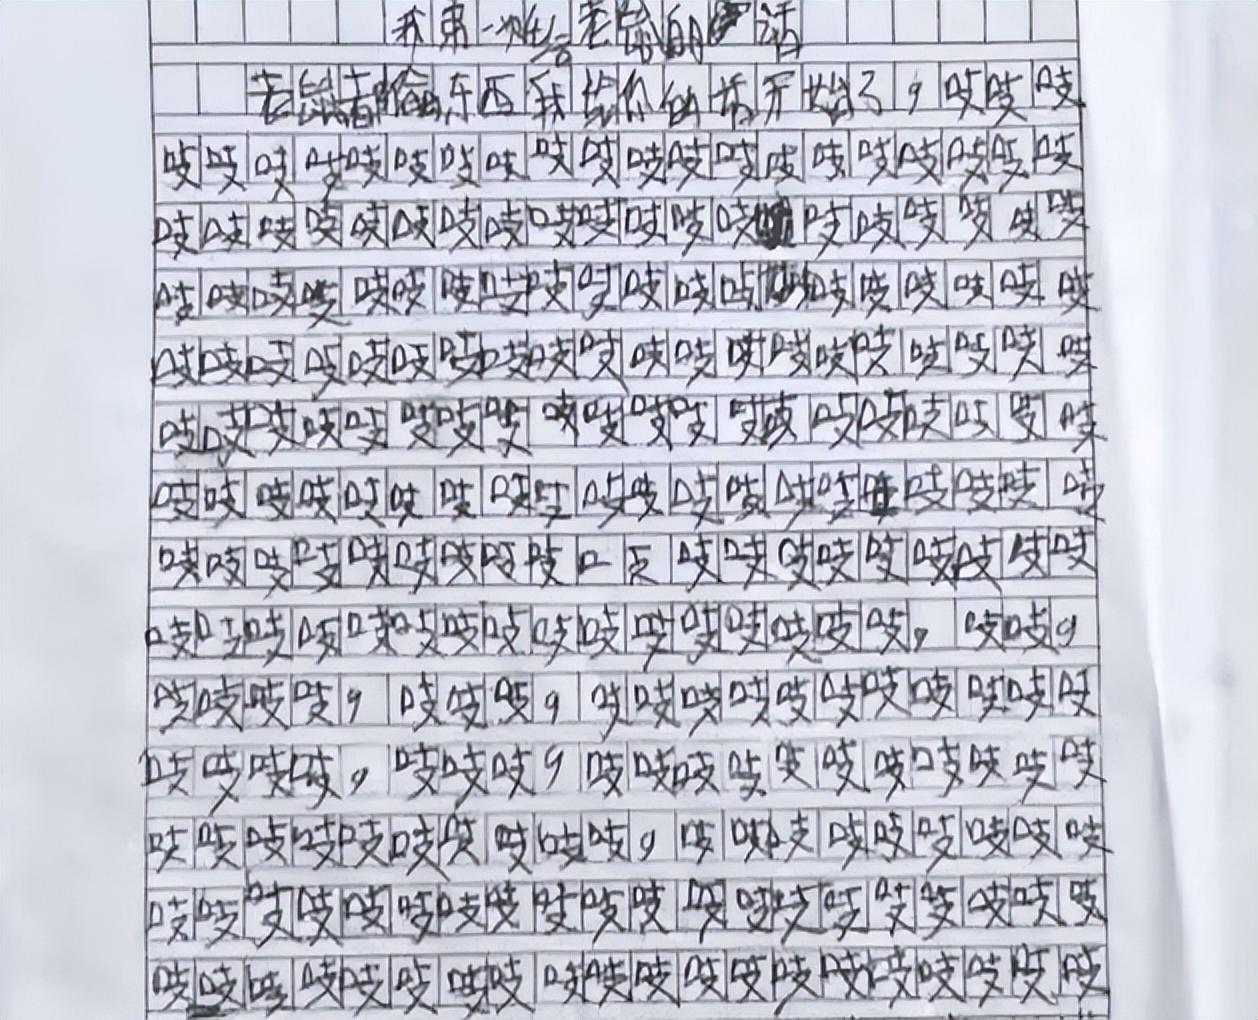 我第一次给老鼠的话
老鼠着偷东西我给你的话开始了，吱吱吱
吱吱吱吱吱吱吱吱吱吱吱吱吱吱吱吱吱吱吱吱
吱吱吱吱吱吱吱吱吱吱吱吱吱吱吱吱吱吱吱
吱吱吱吱吱吱吱吱吱吱吱吱吱吱吱吱吱吱吱
吱吱吱吱吱吱吱吱吱吱吱吱吱吱吱吱吱吱吱吱
吱吱吱吱吱吱吱吱吱吱吱吱吱吱吱吱吱吱吱吱
吱吱吱吱吱吱吱吱吱吱吱吱吱吱吱吱吱吱吱吱
吱吱吱吱吱吱吱吱吱口支吱吱吱吱吱吱吱吱吱
吱吱吱吱吱吱吱吱吱吱吱吱吱吱吱吱，吱吱，
吱吱吱吱，吱吱吱，吱吱吱吱吱吱吱吱吱吱吱
吱吱吱吱，吱吱吱，吱吱吱吱吱吱吱吱吱吱吱
吱吱吱吱吱吱吱吱吱吱，吱吱吱吱吱吱吱吱吱
吱吱吱吱吱吱吱吱吱吱吱吱吱吱吱吱吱吱吱吱
吱吱吱吱吱吱吱吱吱吱吱吱吱吱吱吱吱吱吱吱